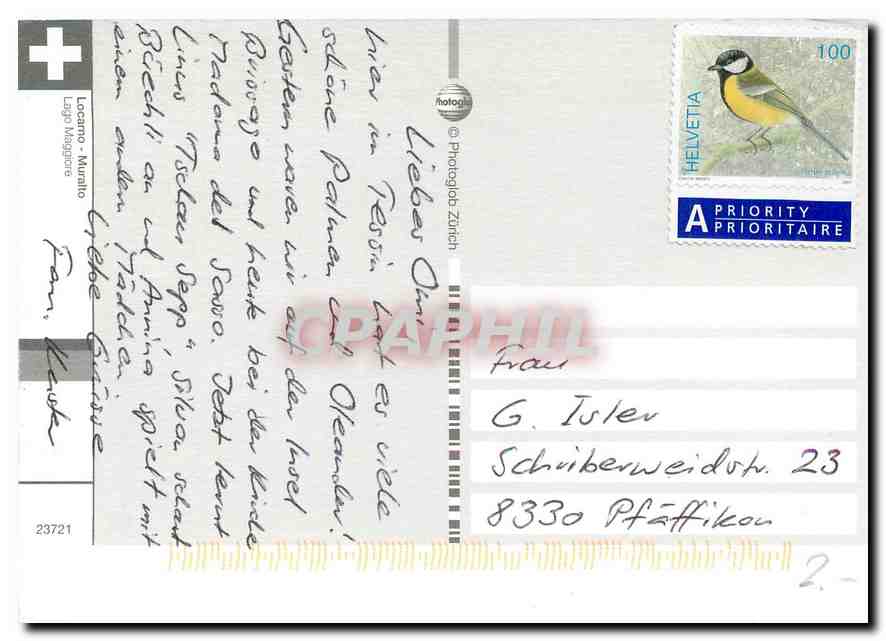 Locarno - Muralto
Lago Maggiore
23721
Photoglob
© Photoglob Zürich
Liebes Omi
hier im Tessin hat es viele
schöne Palmen und Oleander!
Gestern waren wir auf der Insel
Brissago und heute bei der Kirche
Madonna del Sasso. Jetzt lernt
Linus "Tschau Sepp", Silvan schaut
Büechli an und Annina spielt mit
einem andern Mädchen.
Liebe Grüsse
Fam.
100
HELVETIA
A PRIORITY
PRIORITAIRE
GRAPHIL
Frau
G. Isler
Schriberweidstr. 23
8330 Pfäffikon
2.-